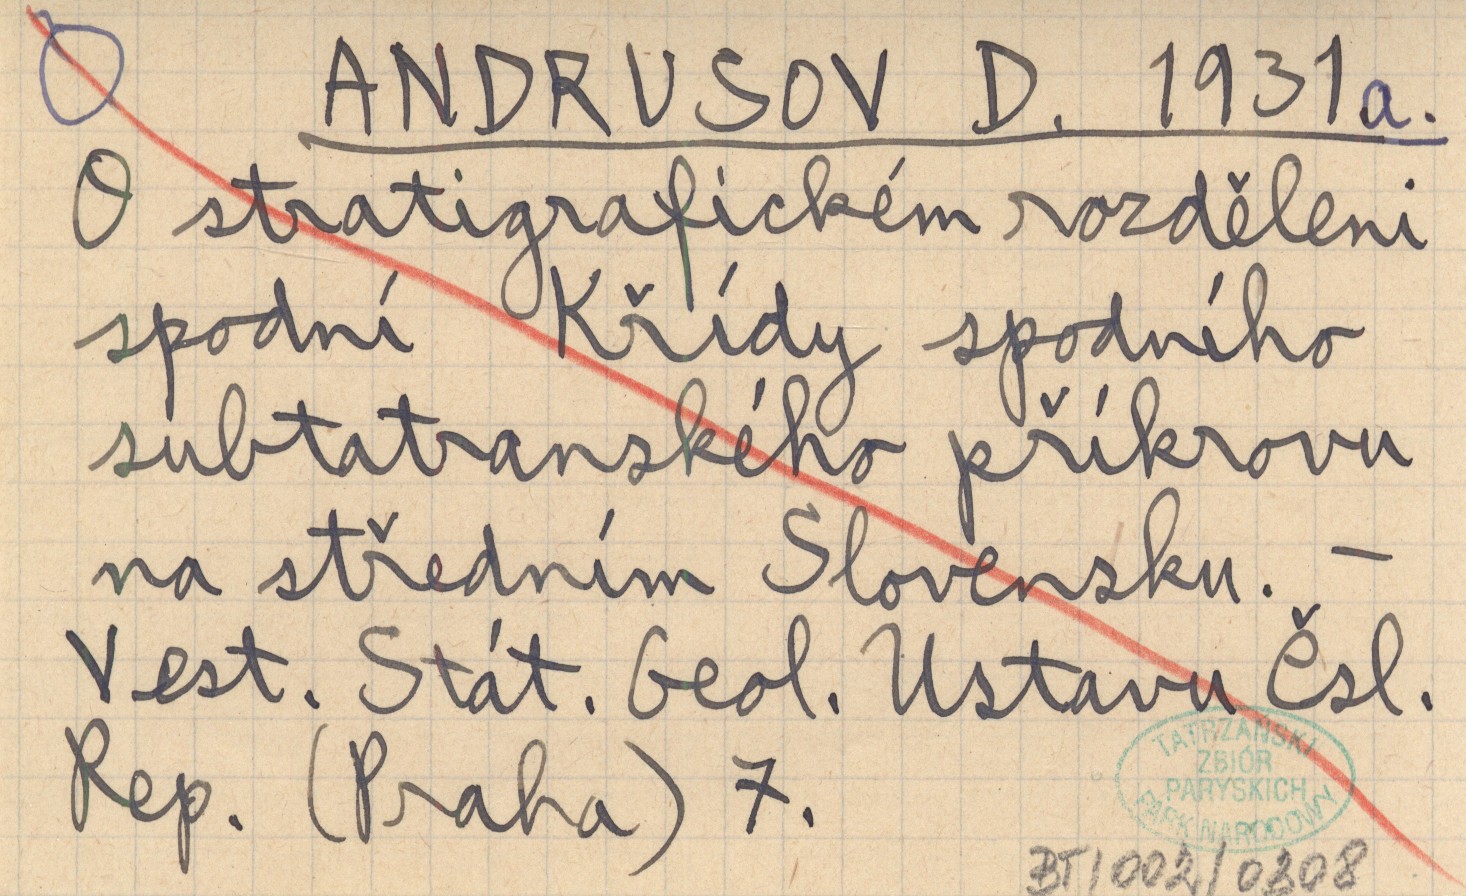 ANDRUSOV D. 1931a.
O stratigrafickém rozděleni
spodní Křídy spodního
subtatranského příkrovu
na středním Slovensku. –
Vest. Stát. Geol. Ustavu Čsl.
Rep. (Praha) 7.
TATRZAŃSKI
ZBIÓR
PARYSKICH
PARK NARODOWY
BT/002/0208